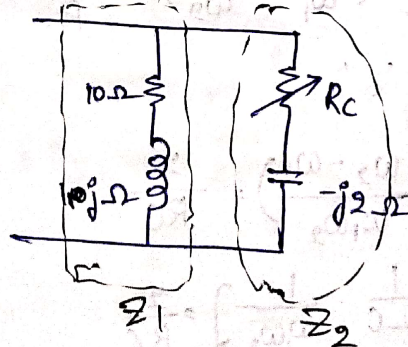 10Ω
R_C
jΩ
-j2Ω
Z_1
Z_2